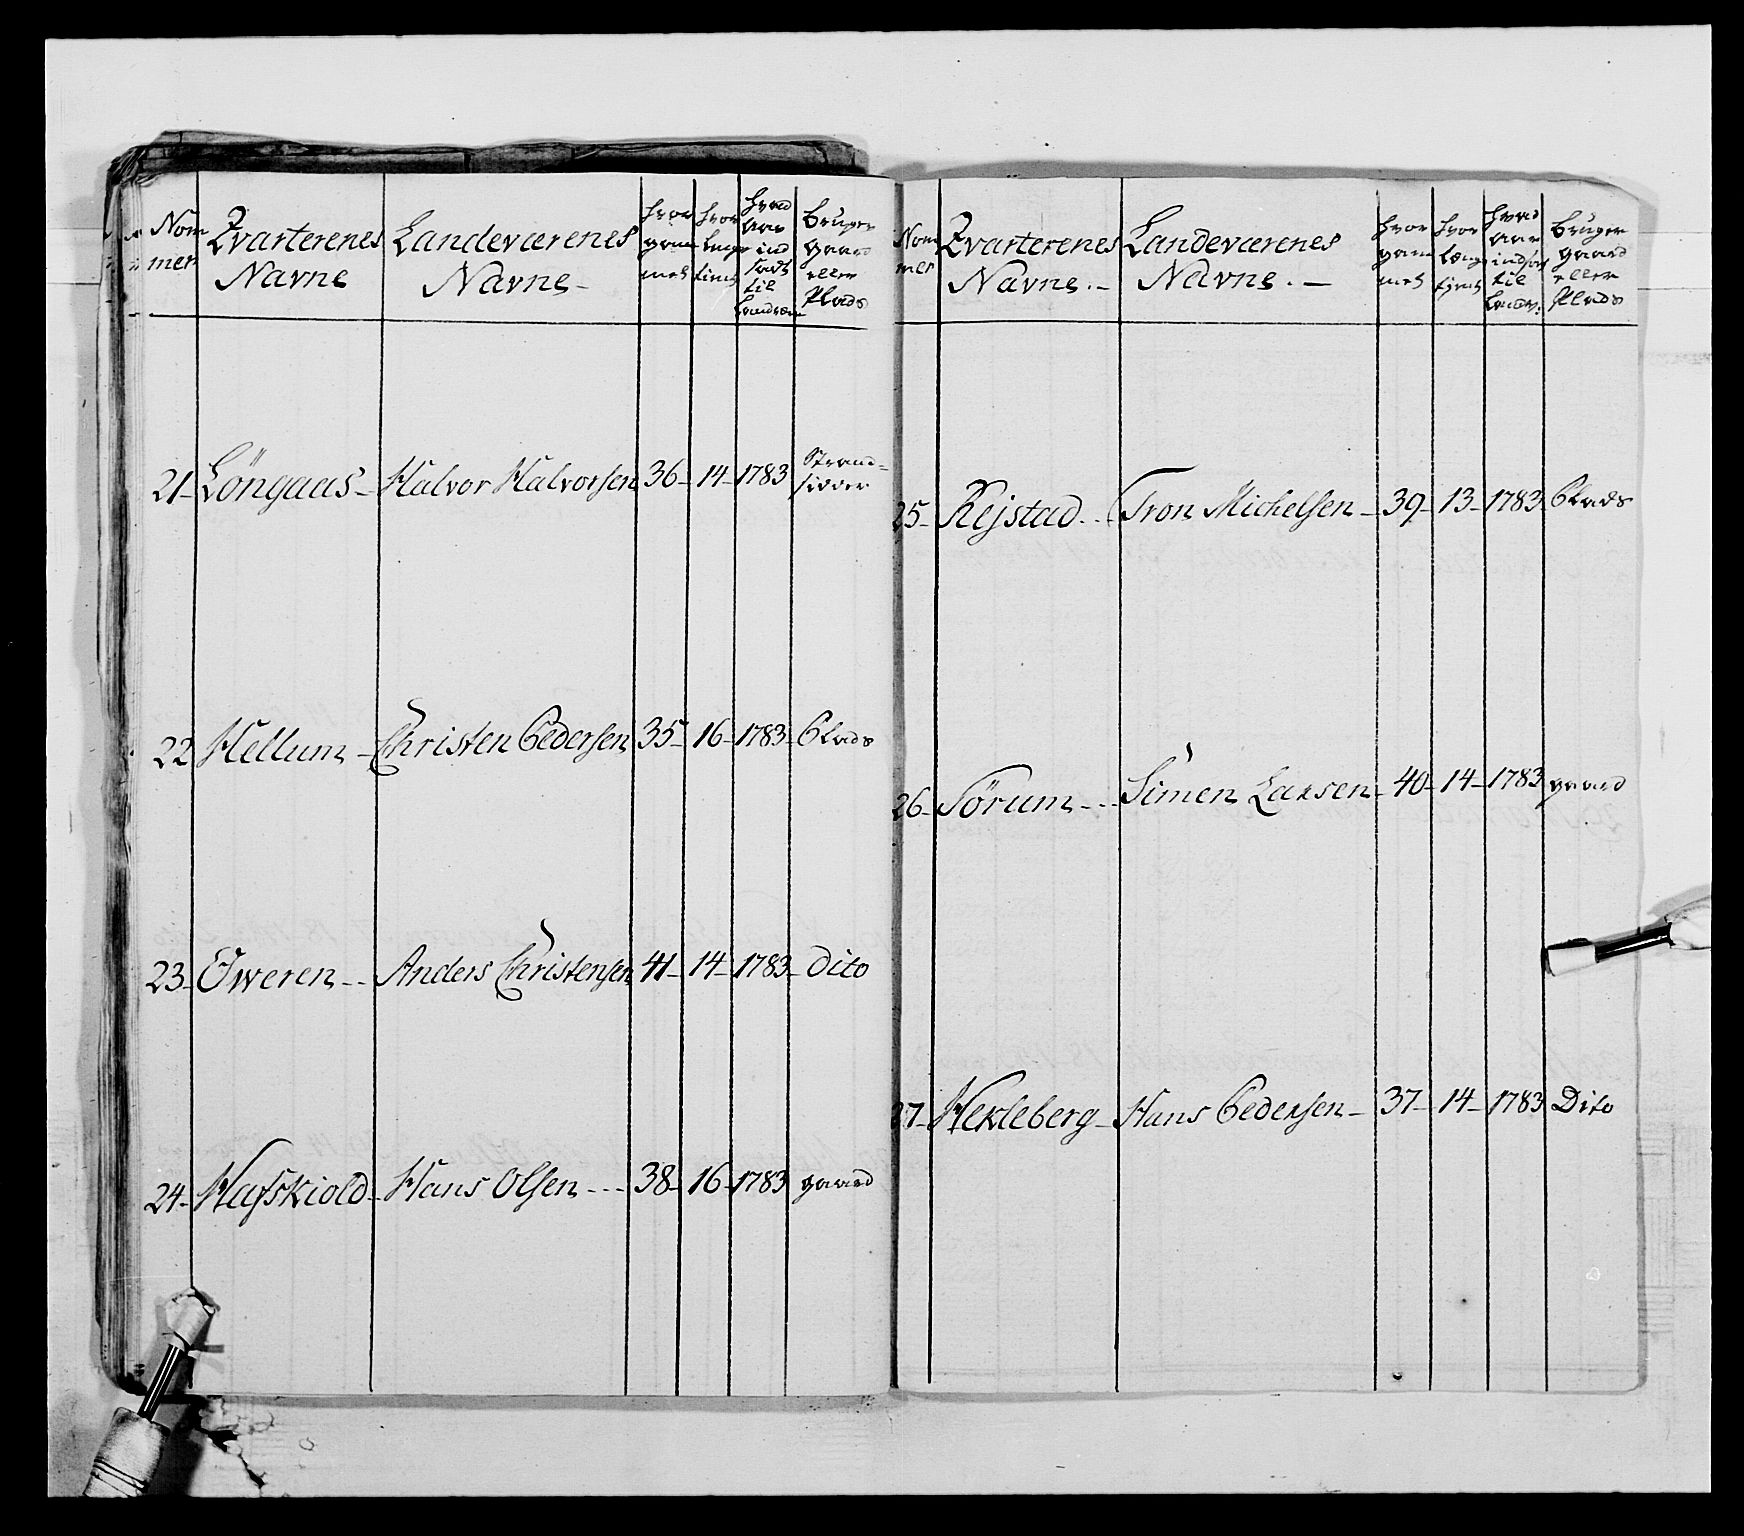 Nommer | Qvarterenes Navne | Landeværenes Navne | hvor gammel | hvor lenge tient | hvad aar indsadt til Landvern | bruger gaard eller Plads
21 | Löngaas | Halvor Halvorsen | 36 | 14 | 1783 | Strandsidder
22 | Hellum | Christen Pedersen | 35 | 16 | 1783 | Plads
23 | Öweren | Anders Christensen | 41 | 14 | 1783 | Dito
24 | Hafskiold | Hans Olsen | 38 | 16 | 1783 | gaard
Nommer | Qvarterenes Navne | Landeværenes Navne | hvor gammel | hvor længe tient | hvad aar indsat til Landv: | bruger gaard eller Plads
25 | Rejstad | Tron Michelsen | 39 | 13 | 1783 | Plads
26 | Sörum | Simen Larsen | 40 | 14 | 1783 | gaard
27 | Hekleberg | Hans Pedersen | 37 | 14 | 1783 | Dito